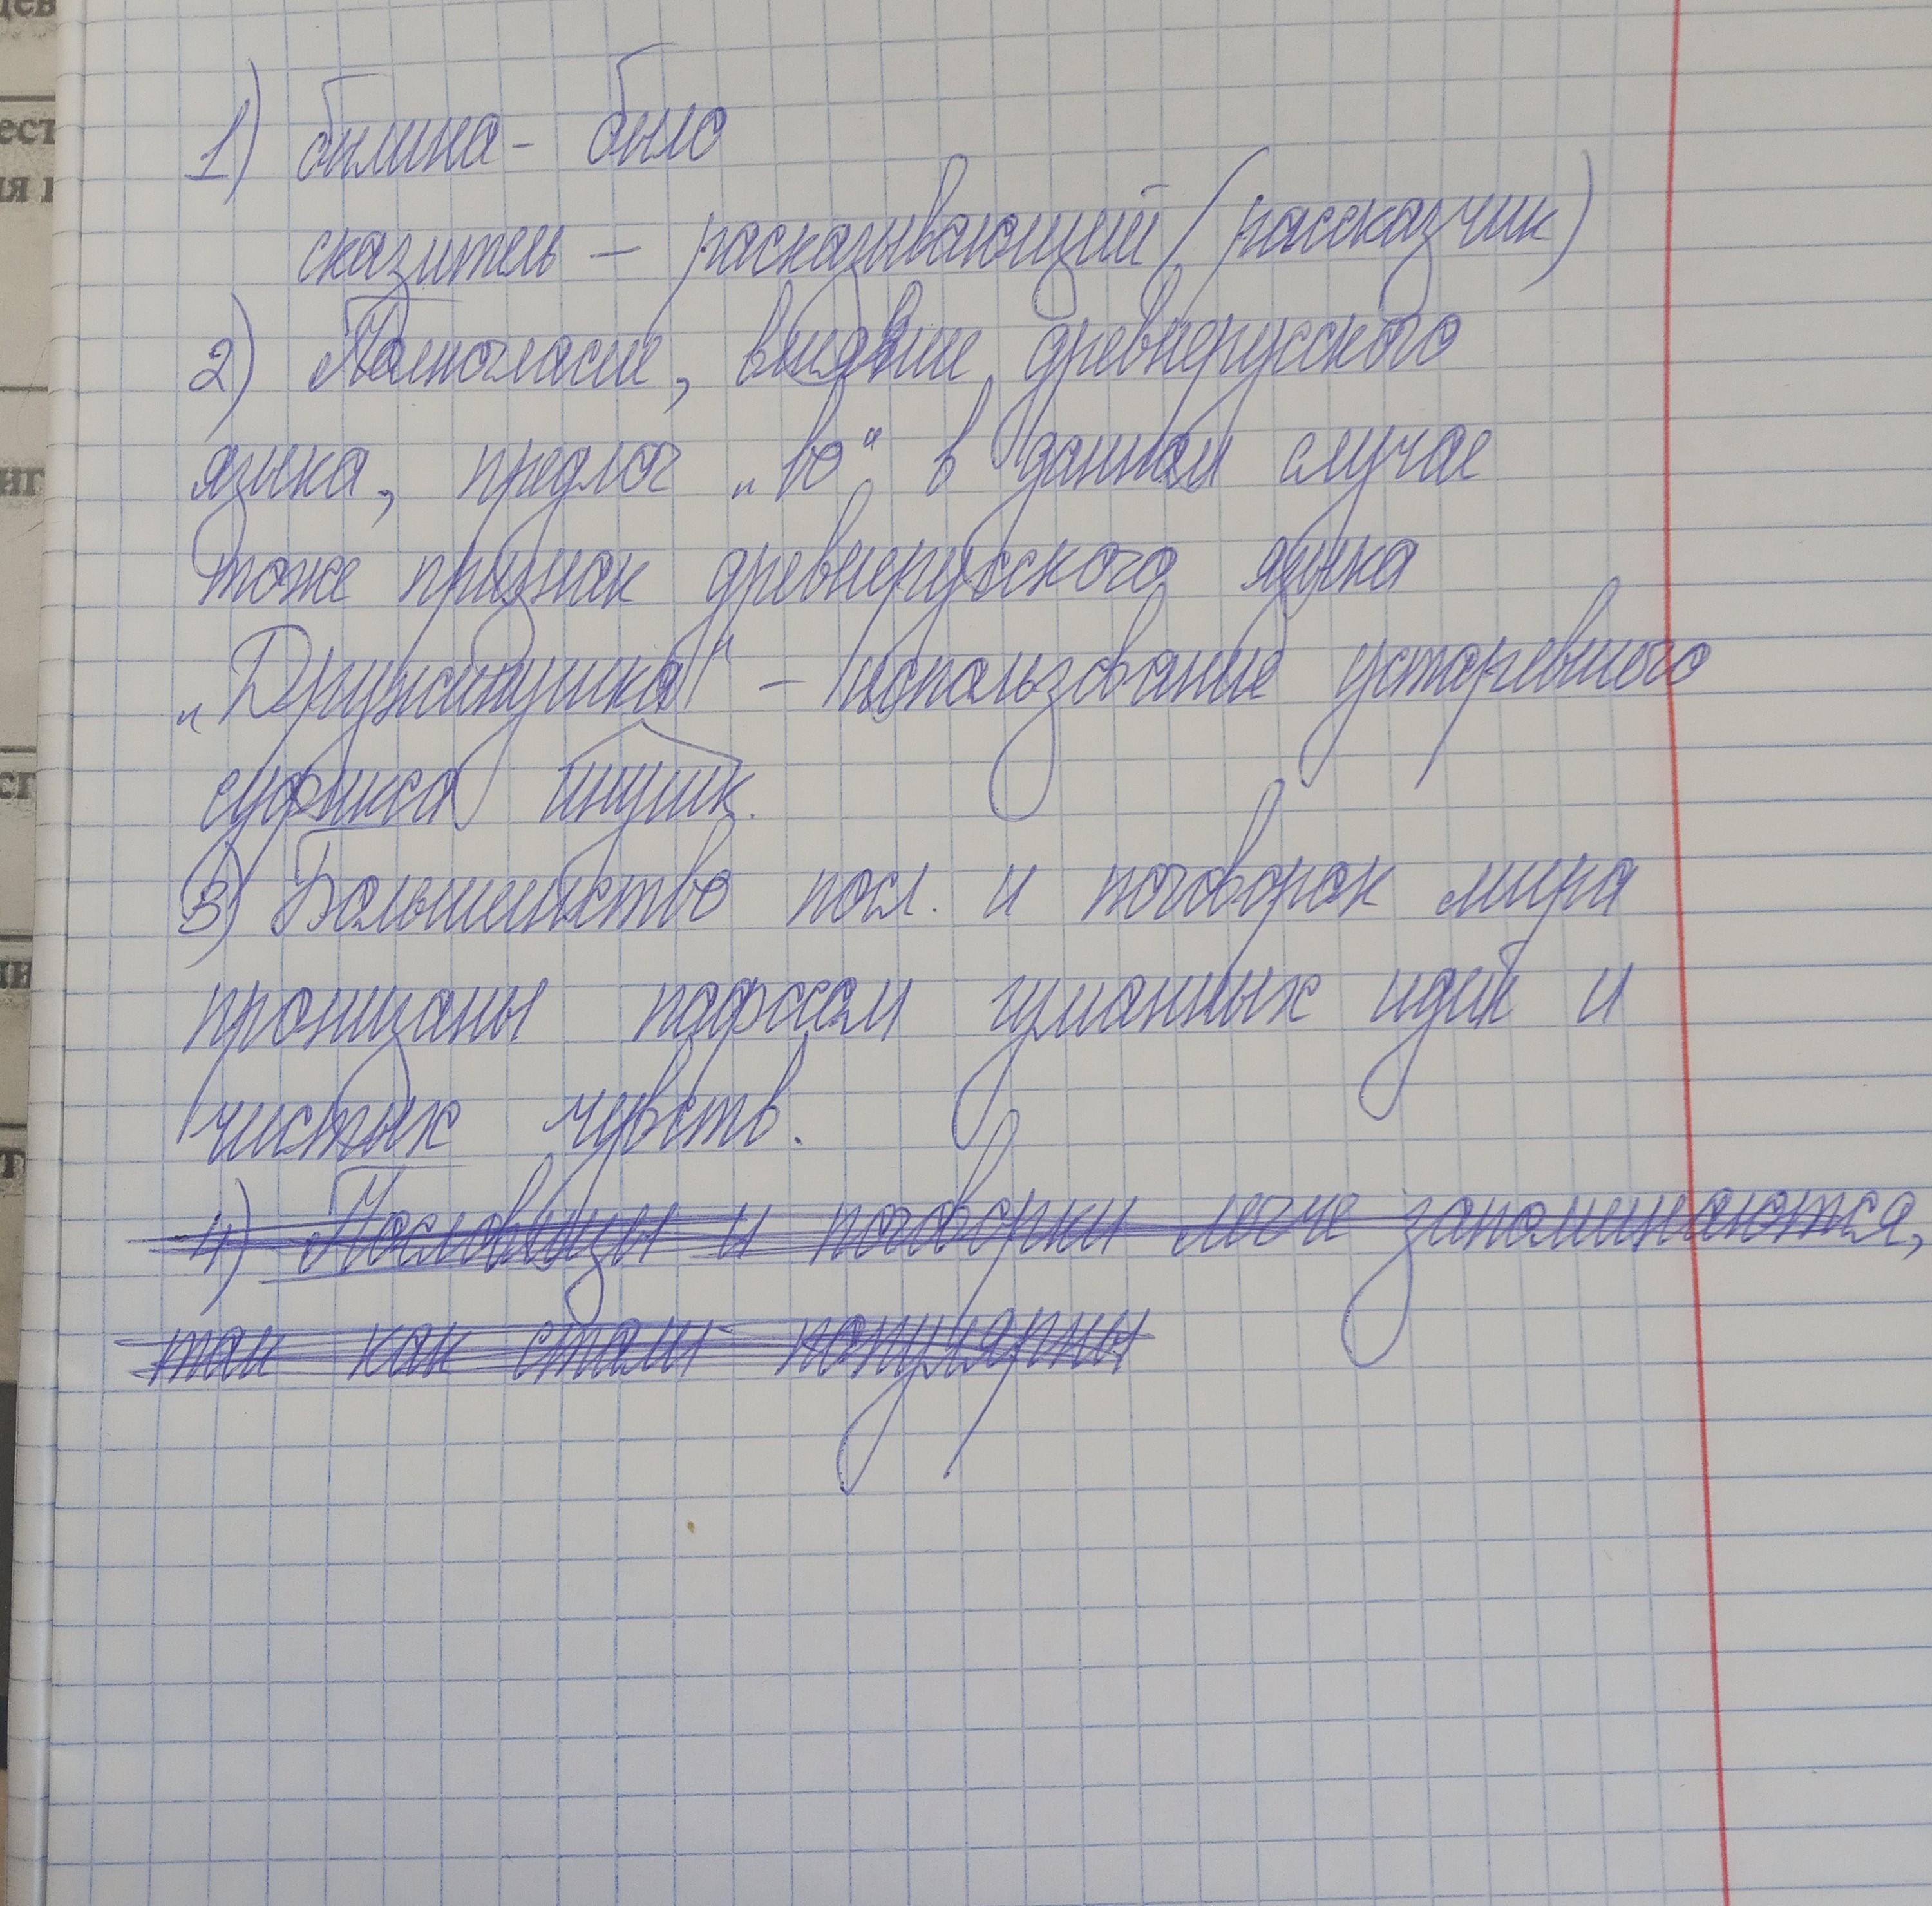 1) былина - было
сказитель - расказывающий (рассказчик)
2) Полногласие, древнерусского
языка, предлог "во" в данном случае
тоже признак древнерусского языка
"Дружинушка" - использование устаревшего
суфикса инушк.
3) Большинство посл. и поговорок мира
пронизаны пафосом гуманных идей и
чистых чувств.
4) Пословицы и поговорки легче запоминаются,
так как стали популярны